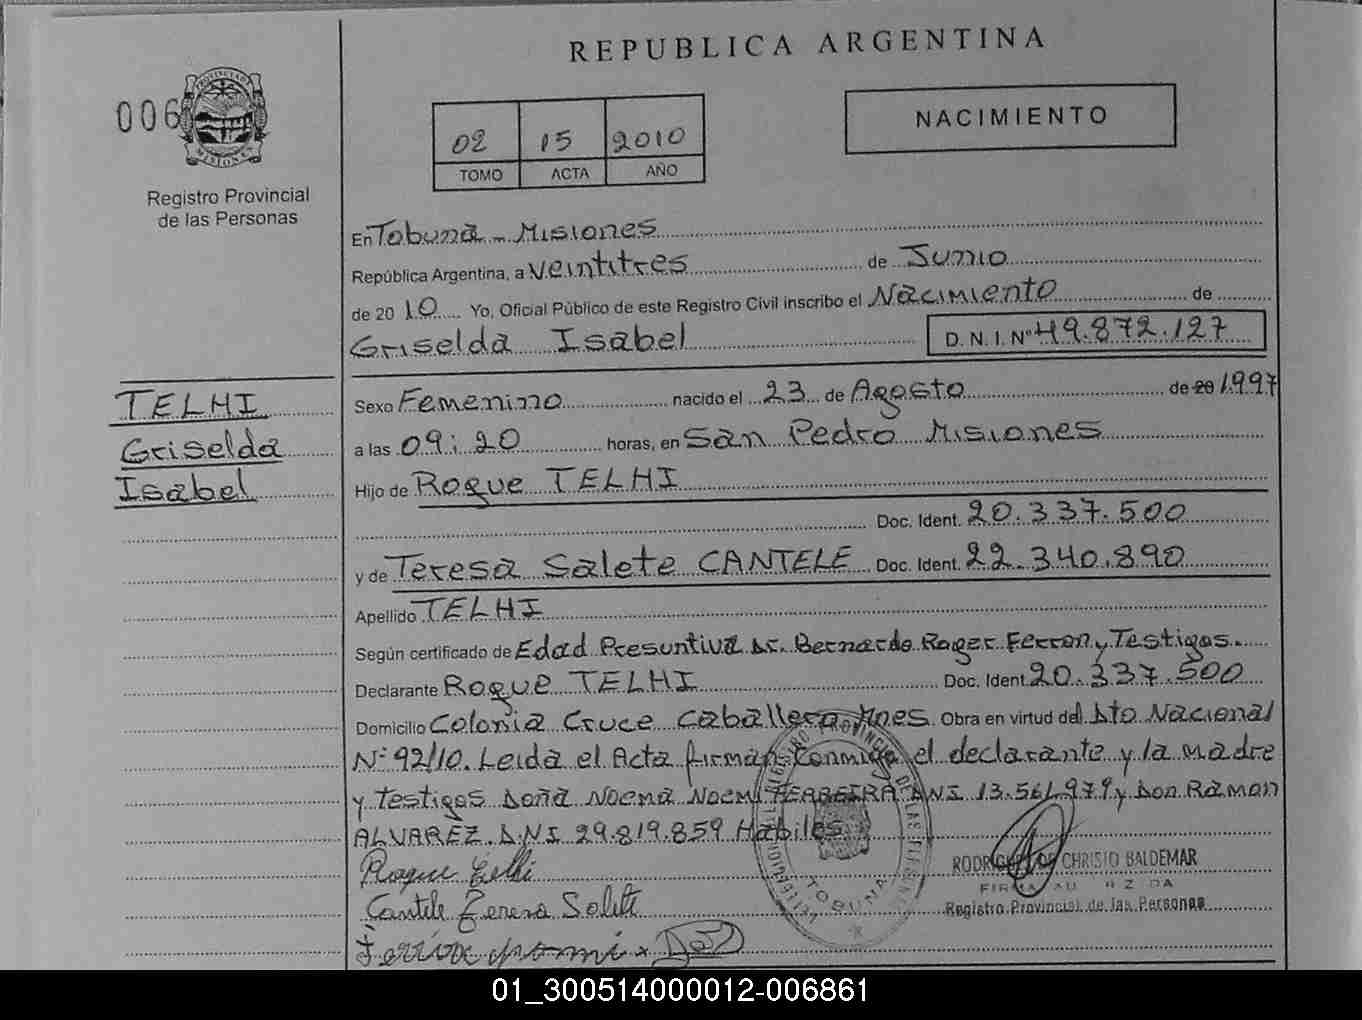 REPUBLICA ARGENTINA
006
PROVINCIA DE
MISIONES
Registro Provincial
de las Personas
02 15 2010
TOMO ACTA AÑO
NACIMIENTO
En Tobuna - Misiones
República Argentina, a veintitres de Junio
de 20 10 Yo, Oficial Público de este Registro Civil inscribo el Nacimiento de
Griselda Isabel D. N. I. Nº 49.872.127
TELHI
Griselda
Isabel
Sexo Femenino nacido el 23 de Agosto de 20 1997
a las 09:20 horas, en San Pedro Misiones
Hijo de Roque TELHI
Doc. Ident. 20.337.500
y de Teresa Salete CANTELE Doc. Ident. 22.340.890
Apellido TELHI
Según certificado de Edad Presuntiva Dr. Bernardo Roger Ferron y Testigos.
Declarante Roque TELHI Doc. Ident. 20.337.500
Domicilio Colonia Cruce Caballero Mnes. Obra en virtud del Dto Nacional
Nº 92/10. Leida el Acta firman conmigo el declarante y la madre
y testigos Doña Noema Noemi FERREIRA DNI 13.561.979 y Don Ramon
ALVAREZ. D.N.I. 29.819.859 Habiles
Roque Telhi
Cantele Teresa Salete
REGISTRO PROVINCIAL DE LAS PERSONAS
TOBUNA
CHRISTO BALDEMAR
Registro Provincial de las Personas
01_300514000012-006861